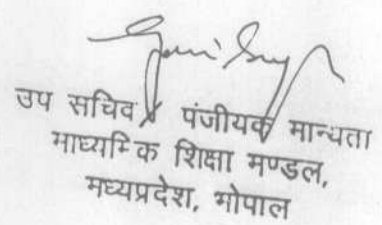 उप सचिव पंजीयक मान्यता
माध्यमिक शिक्षा मण्डल,
मध्यप्रदेश, भोपाल